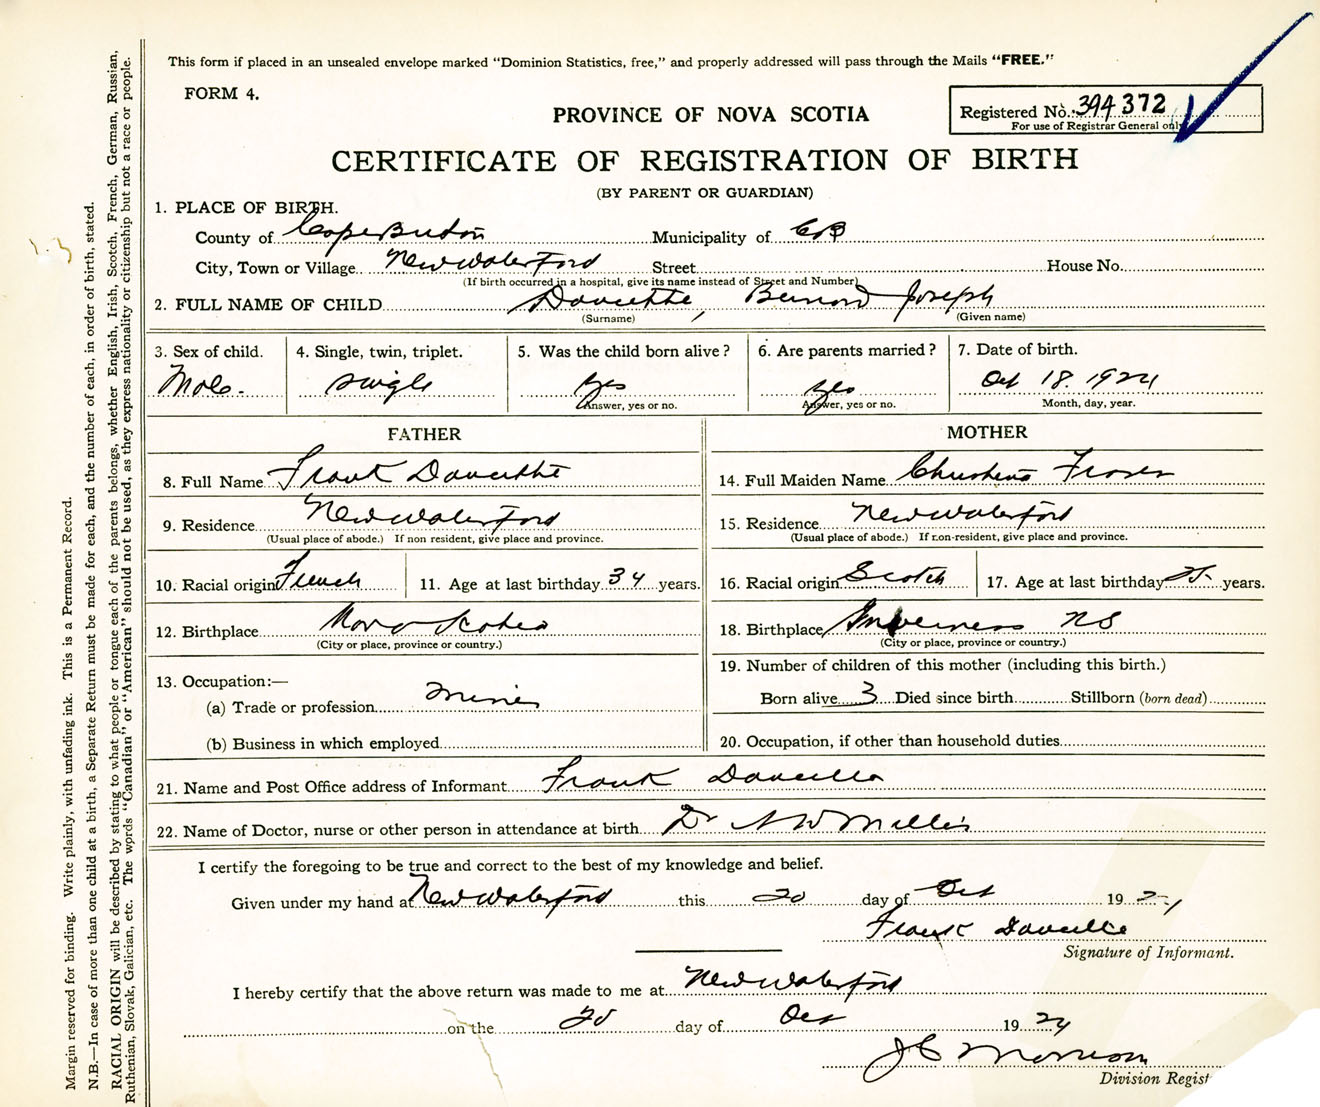 This form if placed in an unsealed envelope marked "Dominion Statistics, free," and properly addressed will pass through the Mails "FREE."
FORM 4.
PROVINCE OF NOVA SCOTIA
Registered No. 394372
For use of Registrar General only
CERTIFICATE OF REGISTRATION OF BIRTH
(BY PARENT OR GUARDIAN)
1. PLACE OF BIRTH.
County of Cape Breton Municipality of CB
City, Town or Village New Waterford Street House No.
(If birth occurred in a hospital, give its name instead of Street and Number)
2. FULL NAME OF CHILD Doucette, Bernard Joseph
(Surname) (Given name)
3. Sex of child. 4. Single, twin, triplet. 5. Was the child born alive? 6. Are parents married? 7. Date of birth.
Male. single yes yes Oct 18. 1924
Answer, yes or no. Answer, yes or no. Month, day, year.
FATHER
8. Full Name Frank Doucette
9. Residence New Waterford
(Usual place of abode.) If non resident, give place and province.
10. Racial origin French 11. Age at last birthday 34 years.
12. Birthplace Nova Scotia
(City or place, province or country.)
13. Occupation:—
(a) Trade or profession miner
(b) Business in which employed
MOTHER
14. Full Maiden Name Christena Fraser
15. Residence New Waterford
(Usual place of abode.) If non-resident, give place and province.
16. Racial origin Scotch 17. Age at last birthday 25 years.
18. Birthplace Inverness NS
(City or place, province or country.)
19. Number of children of this mother (including this birth.)
Born alive 3 Died since birth Stillborn (born dead)
20. Occupation, if other than household duties
21. Name and Post Office address of Informant Frank Doucette
22. Name of Doctor, nurse or other person in attendance at birth Dr
I certify the foregoing to be true and correct to the best of my knowledge and belief.
Given under my hand at New Waterford this 20 day of Oct 192
Frank Doucette
Signature of Informant.
I hereby certify that the above return was made to me at New Waterford
on the 20 day of Oct 1924
J C Morrison
Division Regist
Margin reserved for binding. Write plainly, with unfading ink. This is a Permanent Record.
N.B.—In case of more than one child at a birth, a Separate Return must be made for each, and the number of each, in order of birth, stated.
RACIAL ORIGIN will be described by stating to what people or tongue each of the parents belongs, whether English, Irish, Scotch, French, German, Russian,
Ruthenian, Slovak, Galician, etc. The words "Canadian" or "American" should not be used, as they express nationality or citizenship but not a race or people.